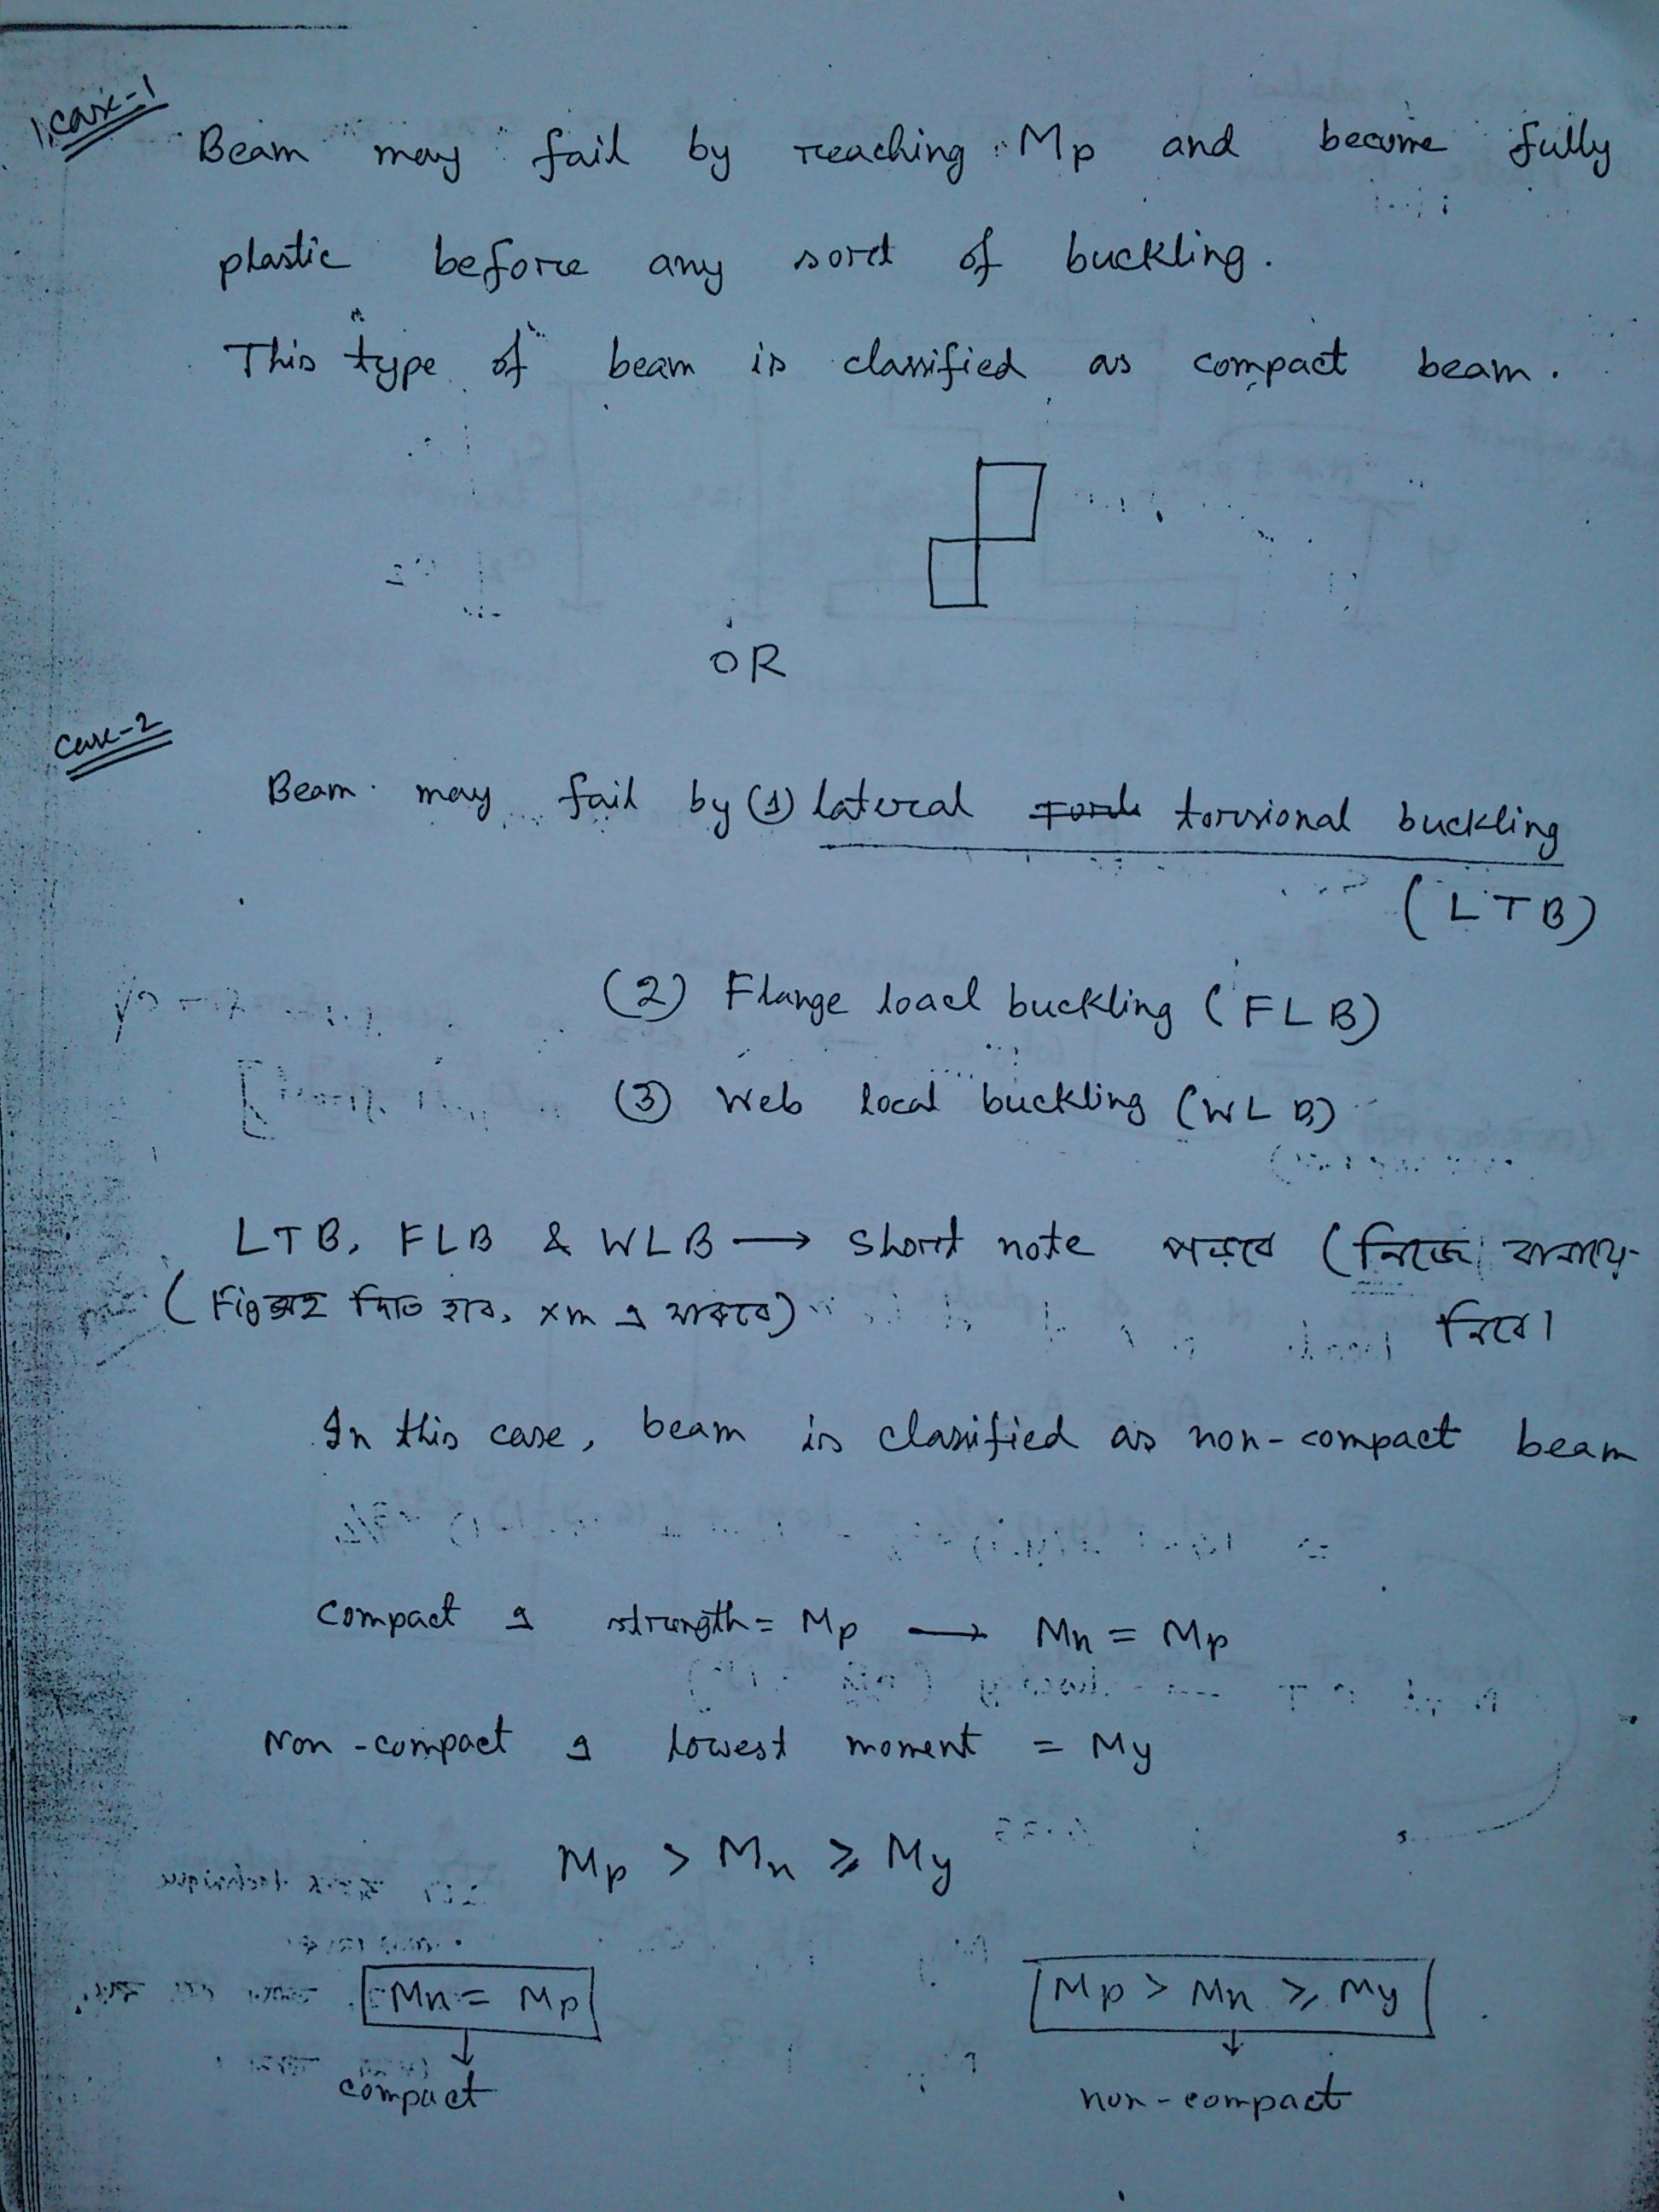 1. Case-1
Beam may fail by reaching Mp and become fully
plastic before any sort of buckling.
This type of beam is classified as compact beam.
OR
Case-2
Beam may fail by (1) lateral torsional buckling
(LTB)
(2) Flange local buckling (FLB)
(3) Web local buckling (WLB)
LTB, FLB & WLB → short note পড়বে (নিজে বানায়
(Fig সহ দিতে হবে, xm এ থাকবে)
নিবে।
In this case, beam is classified as non-compact beam
compact এ strength = Mp → Mn = Mp
Non-compact এ lowest moment = My
Mp > Mn ≥ My
Mn = Mp
Mp > Mn ≥ My
compact
non-compact